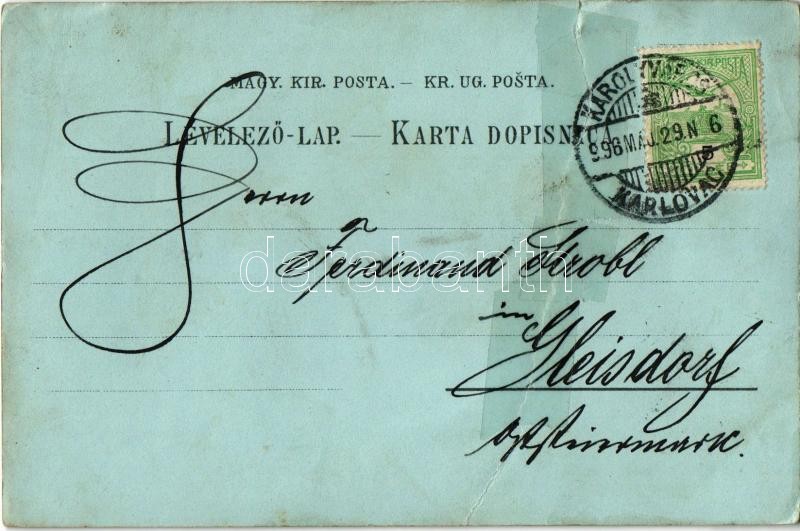 MAGY. KIR. POSTA. — KR. UG. POŠTA.
LEVELEZŐ-LAP. — KARTA DOPISNICA.
KIR. POSTA
996 MÁJ. 29. N 6
KARLOVAC
Herrn
Ferdinand Strobl
darabanth
in
Gleisdorf
Oststeiermark.